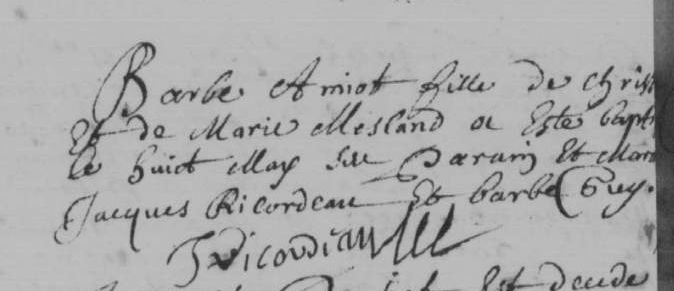 Barbe Amiot fille de Chris
Et de Marie Mesland a Este bapt
le huict May Son Parain Et Mara
Jacques Ricordeau Et barbe Guy.
JRicordeau
Est decede